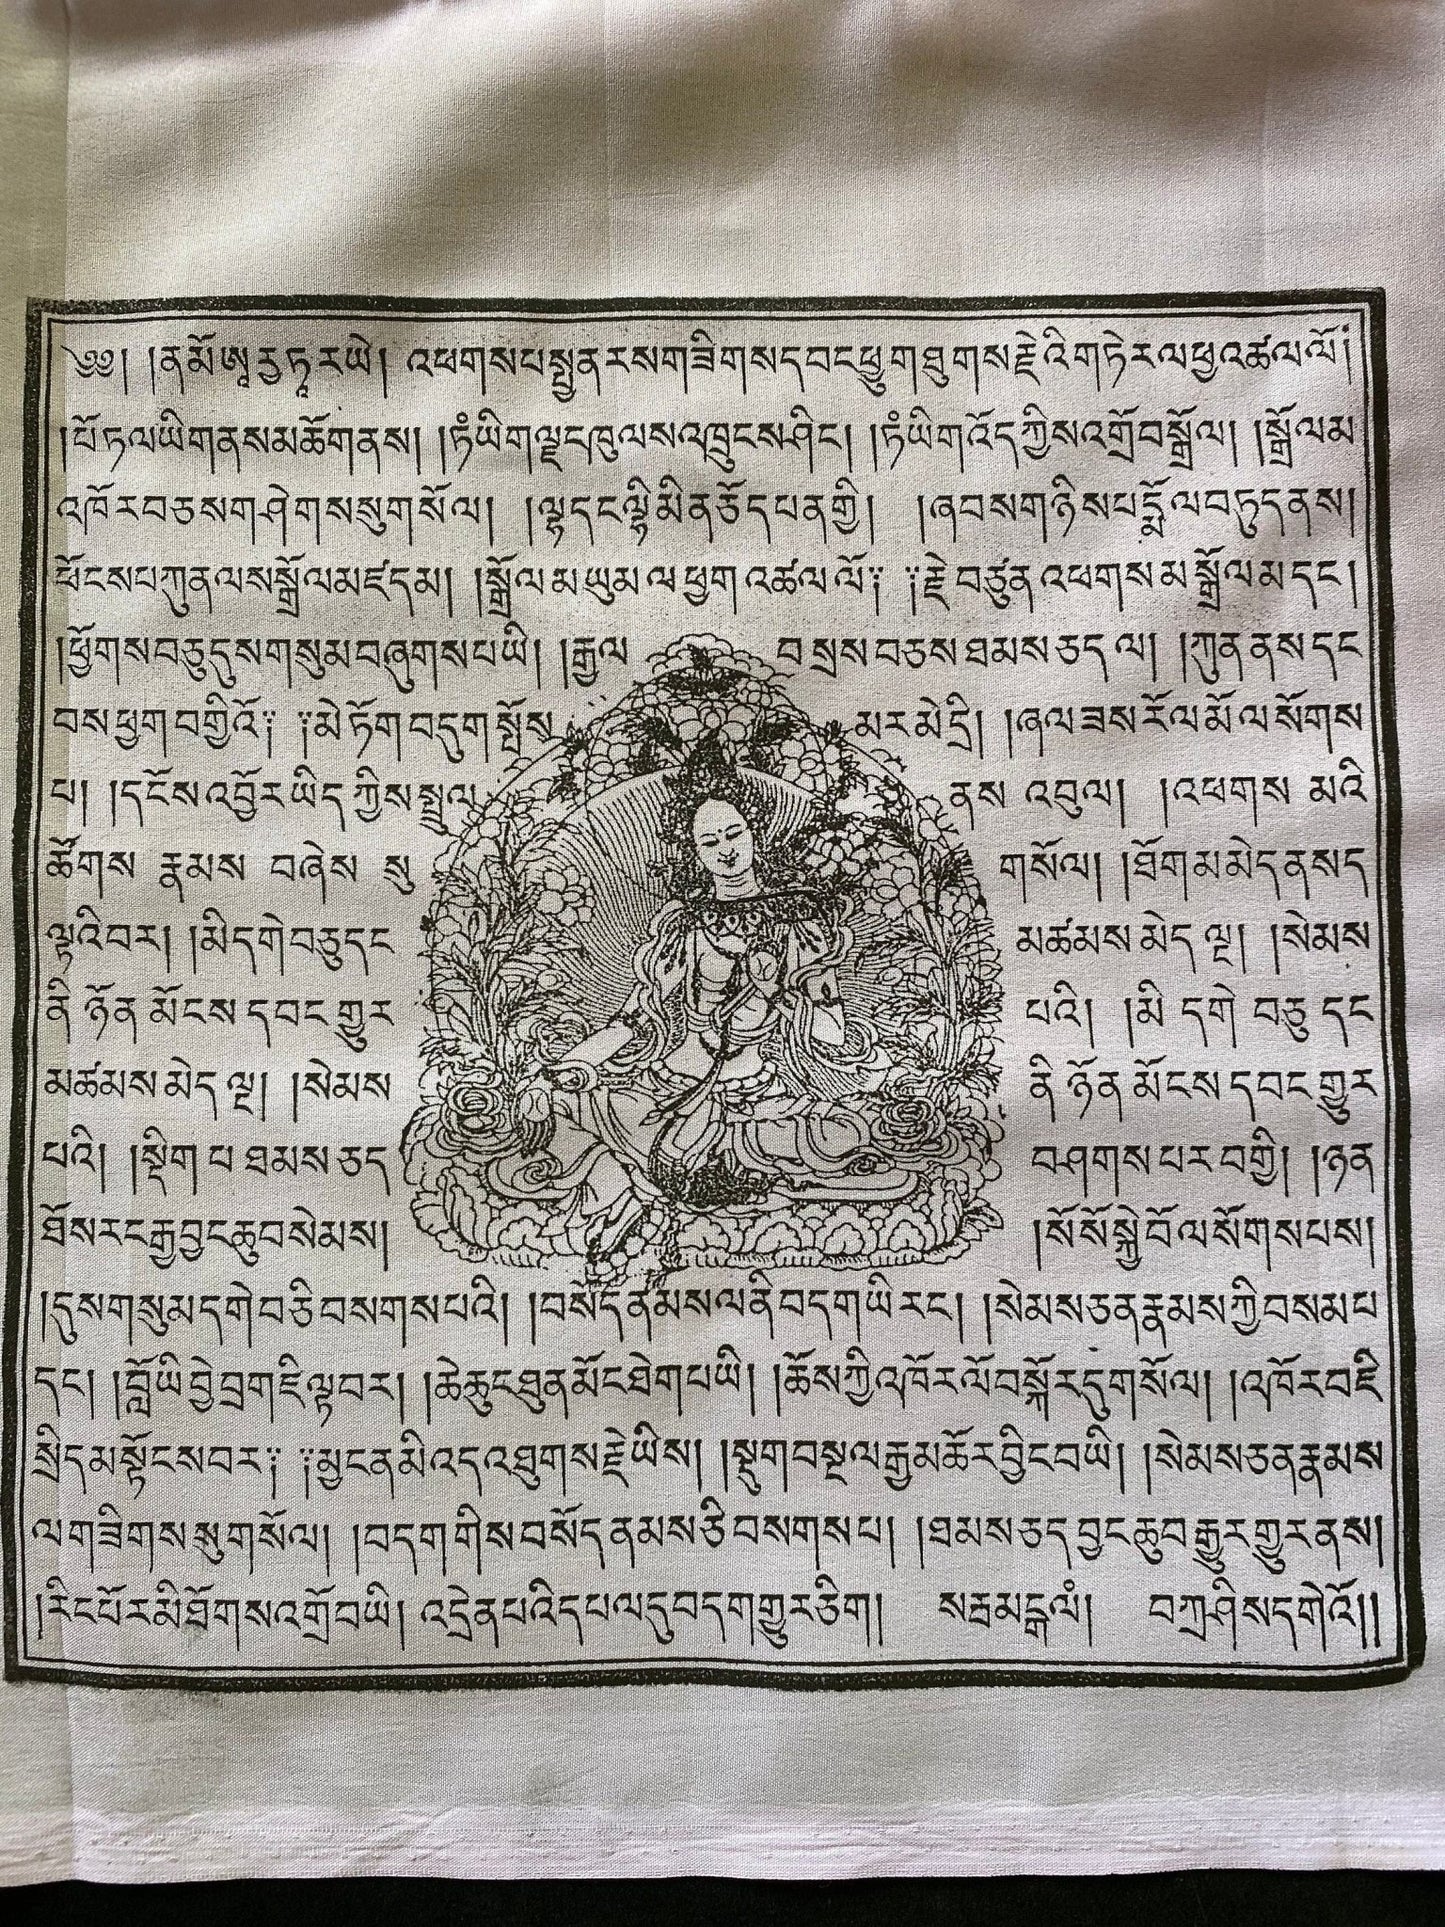 ༄༅། །ན་མོ་ཨཱརྱ་ཏཱ་ར་ཡེ། འཕགས་པ་སྤྱན་རས་གཟིགས་དབང་ཕྱུག་ཐུགས་རྗེའི་གཏེར་ལ་ཕྱ་འཚལ་ལོ།
།པོ་ཏ་ལ་ཡི་གནས་མཆོག་ནས། །ཏཾ་ཡིག་ལྗང་ཁུ་ལས་འཁྲུངས་ཤིང། །ཏཾ་ཡིག་འོད་ཀྱིས་འགྲོ་བ་སྒྲོལ། །སྒྲོལ་མ
འཁོར་བཅས་གཤེགས་སུ་གསོལ། །ལྷ་དང་ལྷ་མིན་ཅོད་པན་གྱི། །ཞབས་གཉིས་པདྨོ་ལ་བཏུད་ནས།
ཕོངས་པ་ཀུན་ལས་སྒྲོལ་མཛད་མ། །སྒྲོལ་མ་ཡུམ་ལ་ཕྱག་འཚལ་ལོ༔ ༔རྗེ་བཙུན་འཕགས་མ་སྒྲོལ་མ་དང།
།ཕྱོགས་བཅུ་དུས་གསུམ་བཞུགས་པ་ཡི། །རྒྱལ བ་སྲས་བཅས་ཐམས་ཅད་ལ། །ཀུན་ནས་དང
བས་ཕྱག་བགྱིའོ༔ ༔མེ་ཏོག་བདུག་སྤོས མར་མེ་དྲི། །ཞལ་ཟས་རོལ་མོ་ལ་སོགས
པ། །དངོས་འབྱོར་ཡིད་ཀྱིས་སྤྲུལ ནས་འབུལ། །འཕགས་མའི
ཚོགས་རྣམས་བཞེས་སུ གསོལ། །ཐོག་མ་མེད་ནས་ད
ལྟའི་བར། །མི་དགེ་བཅུ་དང མཚམས་མེད་ལྔ། །སེམས
ནི་ཉོན་མོངས་དབང་གྱུར པའི། །མི་དགེ་བཅུ་དང
མཚམས་མེད་ལྔ། །སེམས ནི་ཉོན་མོངས་དབང་གྱུར
པའི། །སྡིག་པ་ཐམས་ཅད བཤགས་པར་བགྱི། །ཉན
ཐོས་རང་རྒྱ་བྱང་ཆུབ་སེམས། །སོ་སོ་སྐྱེ་བོ་ལ་སོགས་པས།
།དུས་གསུམ་དགེ་བ་ཅི་བསགས་པའི། །བསོད་ནམས་ལ་ནི་བདག་ཡི་རང། །སེམས་ཅན་རྣམས་ཀྱི་བསམ་པ
དང། །བློ་ཡི་བྱེ་བྲག་ཇི་ལྟ་བར། །ཆེ་ཆུང་ཐུན་མོང་ཐེག་པ་ཡི། །ཆོས་ཀྱི་འཁོར་ལོ་བསྐོར་དུ་གསོལ། །འཁོར་བ་ཇི
སྲིད་མ་སྟོངས་བར༔ ༔མྱ་ངན་མི་འདའ་ཐུགས་རྗེ་ཡིས། །སྡུག་བསྔལ་རྒྱ་མཚོར་བྱིང་བ་ཡི། །སེམས་ཅན་རྣམས
ལ་གཟིགས་སུ་གསོལ། །བདག་གིས་བསོད་ནམས་ཅི་བསགས་པ། །ཐམས་ཅད་བྱང་ཆུབ་རྒྱུར་གྱུར་ནས།
།རིང་པོར་མི་ཐོགས་འགྲོ་བ་ཡི། འདྲེན་པའི་དཔལ་དུ་བདག་གྱུར་ཅིག། སརྦ་མངྒལཾ། བཀྲ་ཤིས་དགེའོ།།